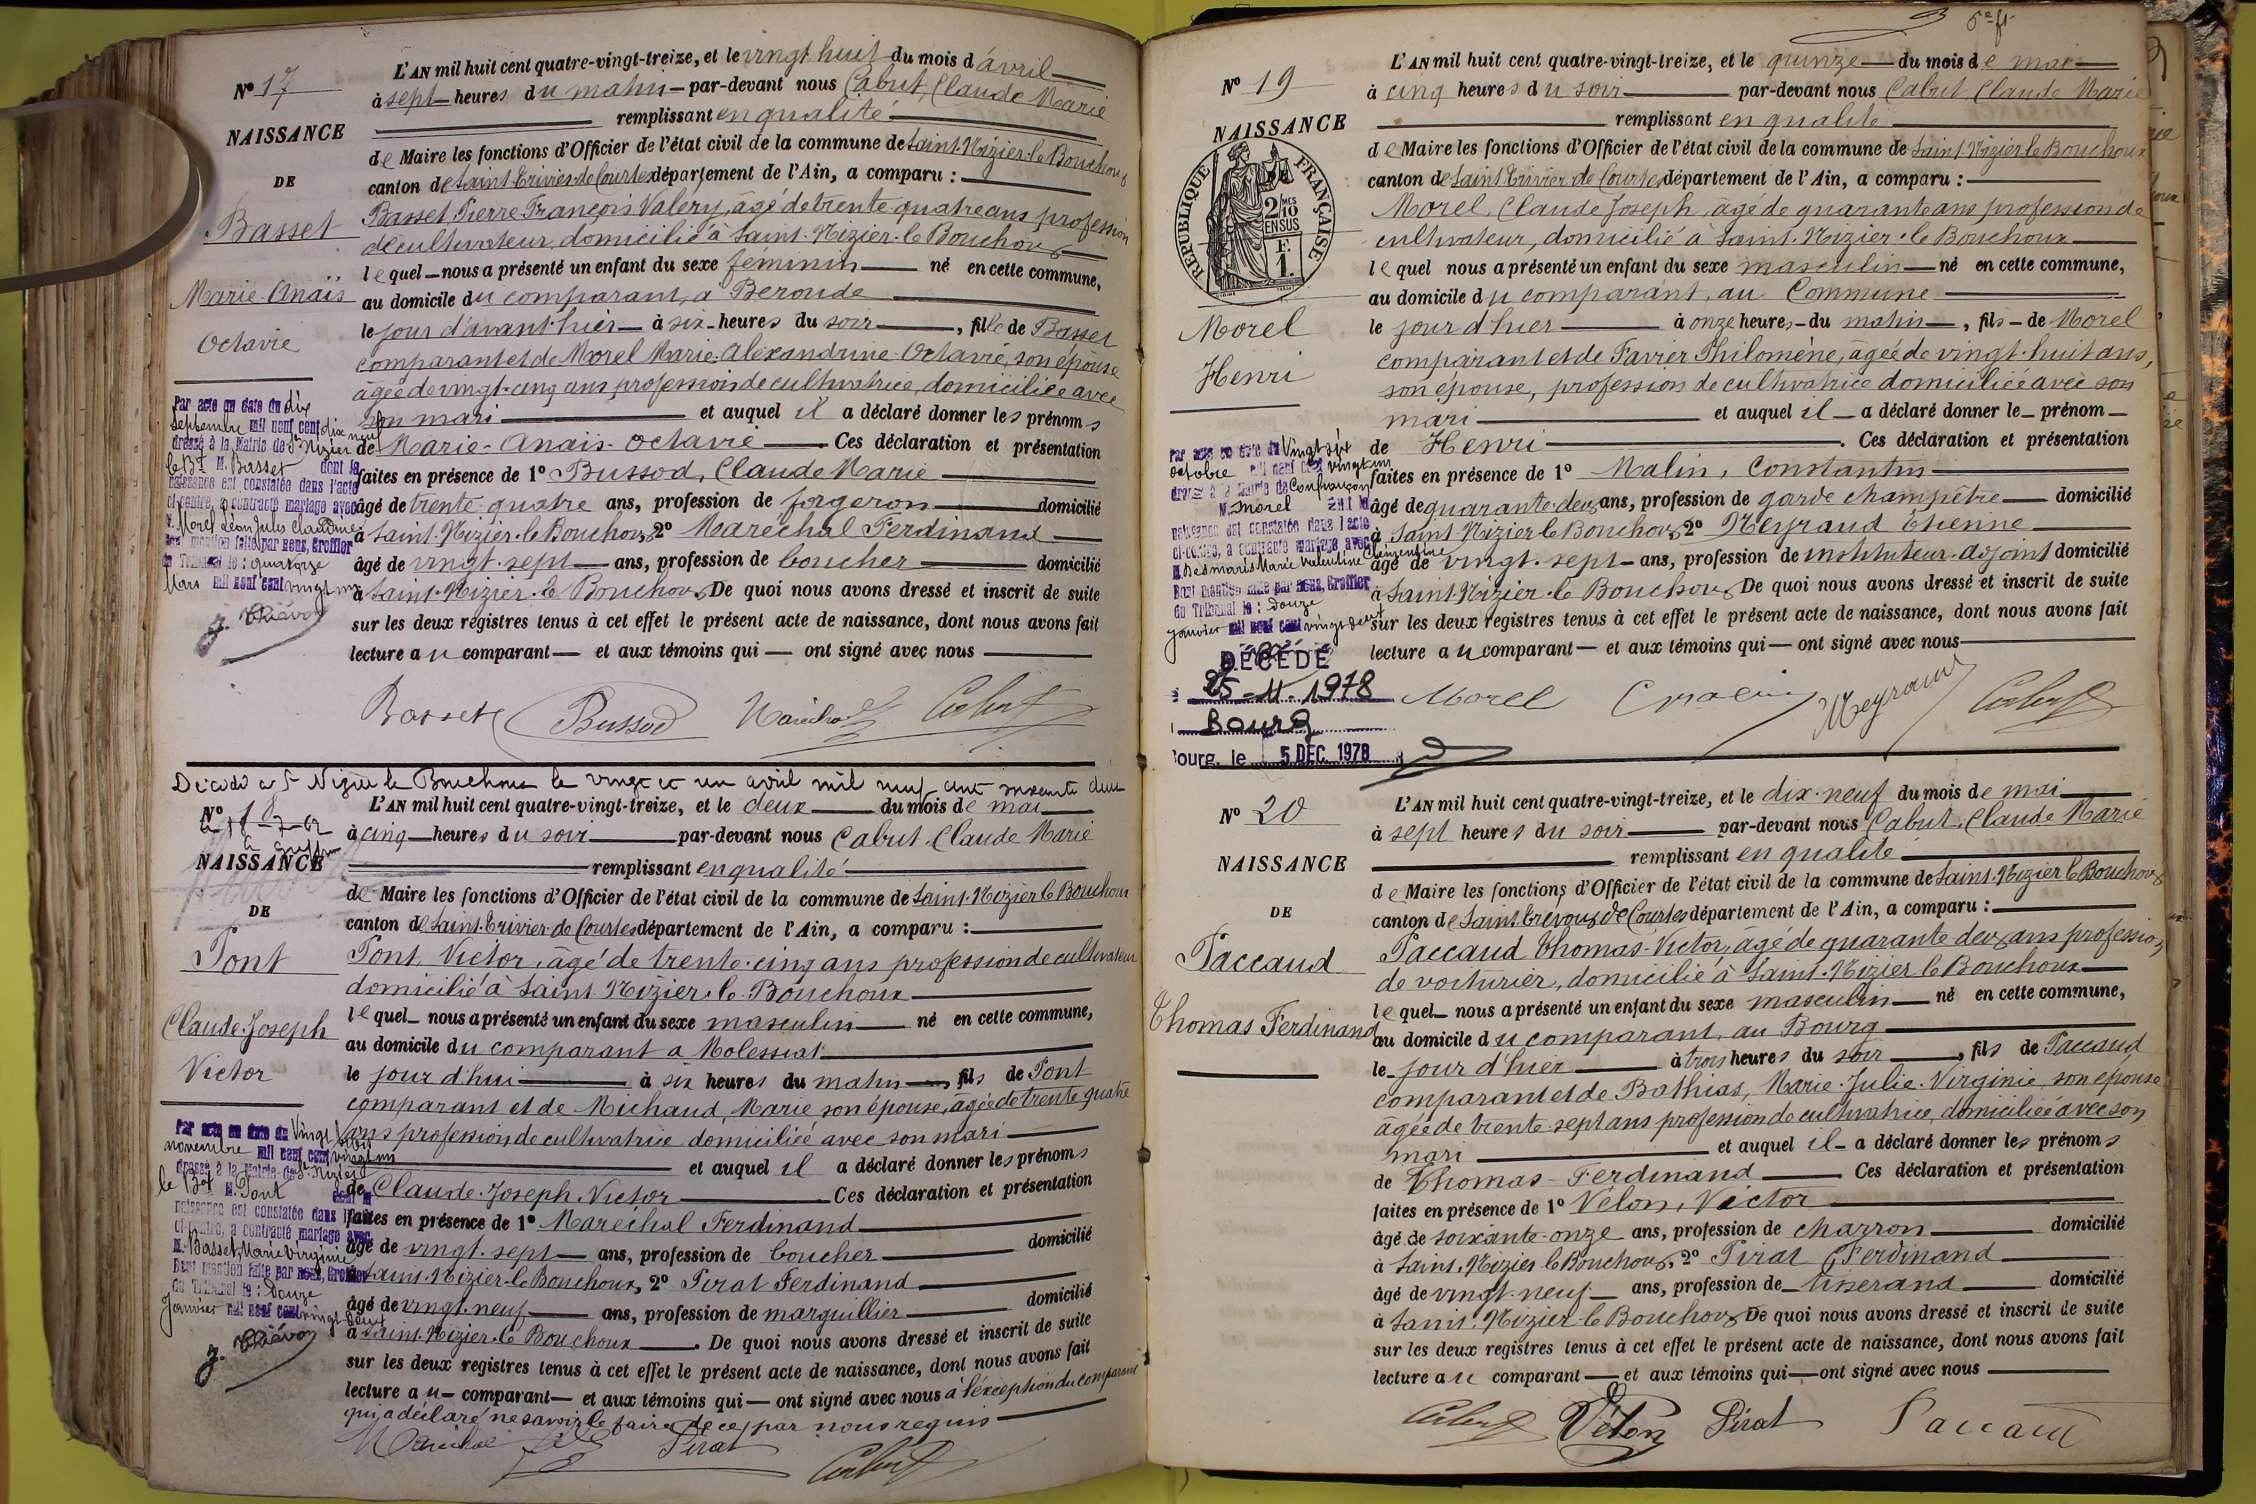 N° 17
NAISSANCE
DE
Basset
Marie-Anaïs
Octavie
L'AN mil huit cent quatre-vingt-treize, et le vingt huit du mois d'avril
à sept heures du matin par-devant nous Cabut, Claude Marie
remplissant en qualité
de Maire les fonctions d'Officier de l'état civil de la commune de Saint-Nizier-le-Bouchoux
canton de Saint-Trivier-de-Courtes département de l'Ain, a comparu :
Basset, Pierre François Valery, âgé de trente quatre ans profession
de cultivateur, domicilié à Saint-Nizier-le-Bouchoux
lequel nous a présenté un enfant du sexe féminin né en cette commune,
au domicile du comparant, a Beronde
le jour d'avant-hier à six heures du soir, fille de Basset
comparant et de Morel Marie-Alexandrine-Octavie, son épouse
âgée de vingt-cinq ans profession de cultivatrice, domiciliée avec
son mari et auquel il a déclaré donner les prénoms
de Marie-Anaïs-Octavie Ces déclaration et présentation
faites en présence de 1° Bussod, Claude Marie
âgé de trente-quatre ans, profession de forgeron domicilié
à Saint-Nizier-le-Bouchoux, 2° Maréchal Ferdinand
âgé de vingt-sept ans, profession de boucher domicilié
à Saint-Nizier-le-Bouchoux De quoi nous avons dressé et inscrit de suite
sur les deux registres tenus à cet effet le présent acte de naissance, dont nous avons fait
lecture au comparant et aux témoins qui ont signé avec nous
Par acte en date du dix
Septembre mil neuf cent dix neuf
dressé à la Mairie de St Nizier
le Bx M. Basset dont la
naissance est constatée dans l'acte
ci-contre, a contracté mariage avec
M. Morel Léon Jules Claudius
Dont mention faite par nous, Greffier
du Tribunal le : quatorze
Mars mil neuf cent vingt un
Basset Bussod Maréchal Cabut
Décédé à St Nizier le Bouchoux le vingt et un avril mil neuf cent soixante deux
N° 18
NAISSANCE
DE
Pont
Claude-Joseph
Victor
L'AN mil huit cent quatre-vingt-treize, et le deux du mois de mai
à cinq heures du soir par-devant nous Cabut, Claude Marie
remplissant en qualité
de Maire les fonctions d'Officier de l'état civil de la commune de Saint-Nizier le Bouchoux
canton de Saint-Trivier-de-Courtes département de l'Ain, a comparu :
Pont, Victor, âgé de trente-cinq ans profession de cultivateur
domicilié à Saint-Nizier-le-Bouchoux
lequel nous a présenté un enfant du sexe masculin né en cette commune,
au domicile du comparant a Molessiat
le jour d'hui à six heures du matin, fils de Pont
comparant et de Michaud, Marie son épouse, âgée de trente quatre
ans profession de cultivatrice domiciliée avec son mari
et auquel il a déclaré donner les prénoms
de Claude-Joseph-Victor Ces déclaration et présentation
faites en présence de 1° Maréchal Ferdinand
âgé de vingt-sept ans, profession de boucher domicilié
à Saint-Nizier-le-Bouchoux, 2° Pirat Ferdinand
âgé de vingt-neuf ans, profession de marguillier domicilié
à Saint-Nizier-le Bouchoux. De quoi nous avons dressé et inscrit de suite
sur les deux registres tenus à cet effet le présent acte de naissance, dont nous avons fait
lecture au comparant et aux témoins qui ont signé avec nous à l'exception du comparant
qui a déclaré ne savoir le faire de ce par nous requis
Par acte en date du Vingt
novembre mil neuf cent vingt un
dressé à la Mairie de St Nizier
le Bx M. Pont dont la
naissance est constatée dans l'acte
ci-contre, a contracté mariage avec
M. Basset, Marie Virginie
Dont mention faite par nous, Greffier
du Tribunal le : Douze
Janvier mil neuf cent vingt deux
Maréchal Pirat Cabut
N° 19
NAISSANCE
RÉPUBLIQUE FRANÇAISE
2 MES 10
EN SUS
F.
1.
Morel
Henri
L'AN mil huit cent quatre-vingt-treize, et le quinze du mois de mai
à cinq heures du soir par-devant nous Cabut, Claude Marie
remplissant en qualité
de Maire les fonctions d'Officier de l'état civil de la commune de Saint-Nizier le Bouchoux
canton de Saint-Trivier-de-Courtes département de l'Ain, a comparu :
Morel, Claude Joseph, âgé de quarante ans profession de
cultivateur, domicilié à Saint-Nizier-le-Bouchoux
lequel nous a présenté un enfant du sexe masculin né en cette commune,
au domicile du comparant, au Commune
le jour d'hier à onze heures du matin, fils de Morel
comparant et de Favier Philomène, âgée de vingt-huit ans,
son épouse, profession de cultivatrice domiciliée avec son
mari et auquel il a déclaré donner le prénom
de Henri. Ces déclaration et présentation
faites en présence de 1° Malin, Constantin
âgé de quarante-deux ans, profession de garde champêtre domicilié
à Saint-Nizier le Bouchoux, 2° Meyraud Etienne
âgé de vingt-sept ans, profession de instituteur-adjoint domicilié
à Saint-Nizier-le Bouchoux De quoi nous avons dressé et inscrit de suite
sur les deux registres tenus à cet effet le présent acte de naissance, dont nous avons fait
lecture au comparant et aux témoins qui ont signé avec nous
Par acte en date du Vingt six
octobre mil neuf cent vingt un
dressé à la Mairie de Confrançon
M. Morel dont la
naissance est constatée dans l'acte
ci-contre, a contracté mariage avec
M. Desmaris Marie Valentine Clémentine
Dont mention faite par nous, Greffier
du Tribunal le : Douze
Janvier mil neuf cent vingt deux
DÉCÉDÉ
25-11-1978
Bourg
Bourg, le 5 DEC. 1978
Morel Malin Meyraud Cabut
N° 20
NAISSANCE
DE
Paccaud
Thomas Ferdinand
L'AN mil huit cent quatre-vingt-treize, et le dix-neuf du mois de mai
à sept heures du soir par-devant nous Cabut, Claude Marie
remplissant en qualité
de Maire les fonctions d'Officier de l'état civil de la commune de Saint-Nizier le Bouchoux
canton de Saint-Trivier de Courtes département de l'Ain, a comparu :
Paccaud Thomas-Victor, âgé de quarante deux ans profession
de voiturier, domicilié à Saint-Nizier le Bouchoux
lequel nous a présenté un enfant du sexe masculin né en cette commune,
au domicile du comparant, au Bourg
le jour d'hier à trois heures du soir, fils de Paccaud
comparant et de Bathias, Marie-Julie-Virginie, son épouse
âgée de trente-sept ans profession de cultivatrice, domiciliée avec son
mari et auquel il a déclaré donner les prénoms
de Thomas-Ferdinand Ces déclaration et présentation
faites en présence de 1° Velon, Victor
âgé de soixante-onze ans, profession de charron domicilié
à Saint-Nizier le Bouchoux, 2° Pirat Ferdinand
âgé de vingt-neuf ans, profession de tisserand domicilié
à Saint-Nizier-le Bouchoux De quoi nous avons dressé et inscrit de suite
sur les deux registres tenus à cet effet le présent acte de naissance, dont nous avons fait
lecture au comparant et aux témoins qui ont signé avec nous
Cabut Velon Pirat Paccaud